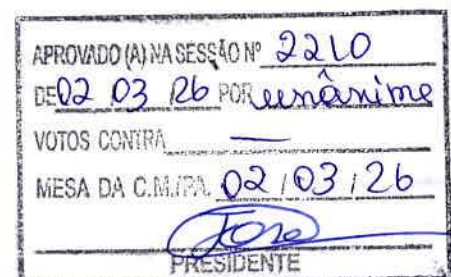 APROVADO (A) NA SESSÃO Nº 2210
DE 02 03 26 POR unânime
VOTOS CONTRA —
MESA DA C.M./PA. 02 / 03 / 26
PRESIDENTE